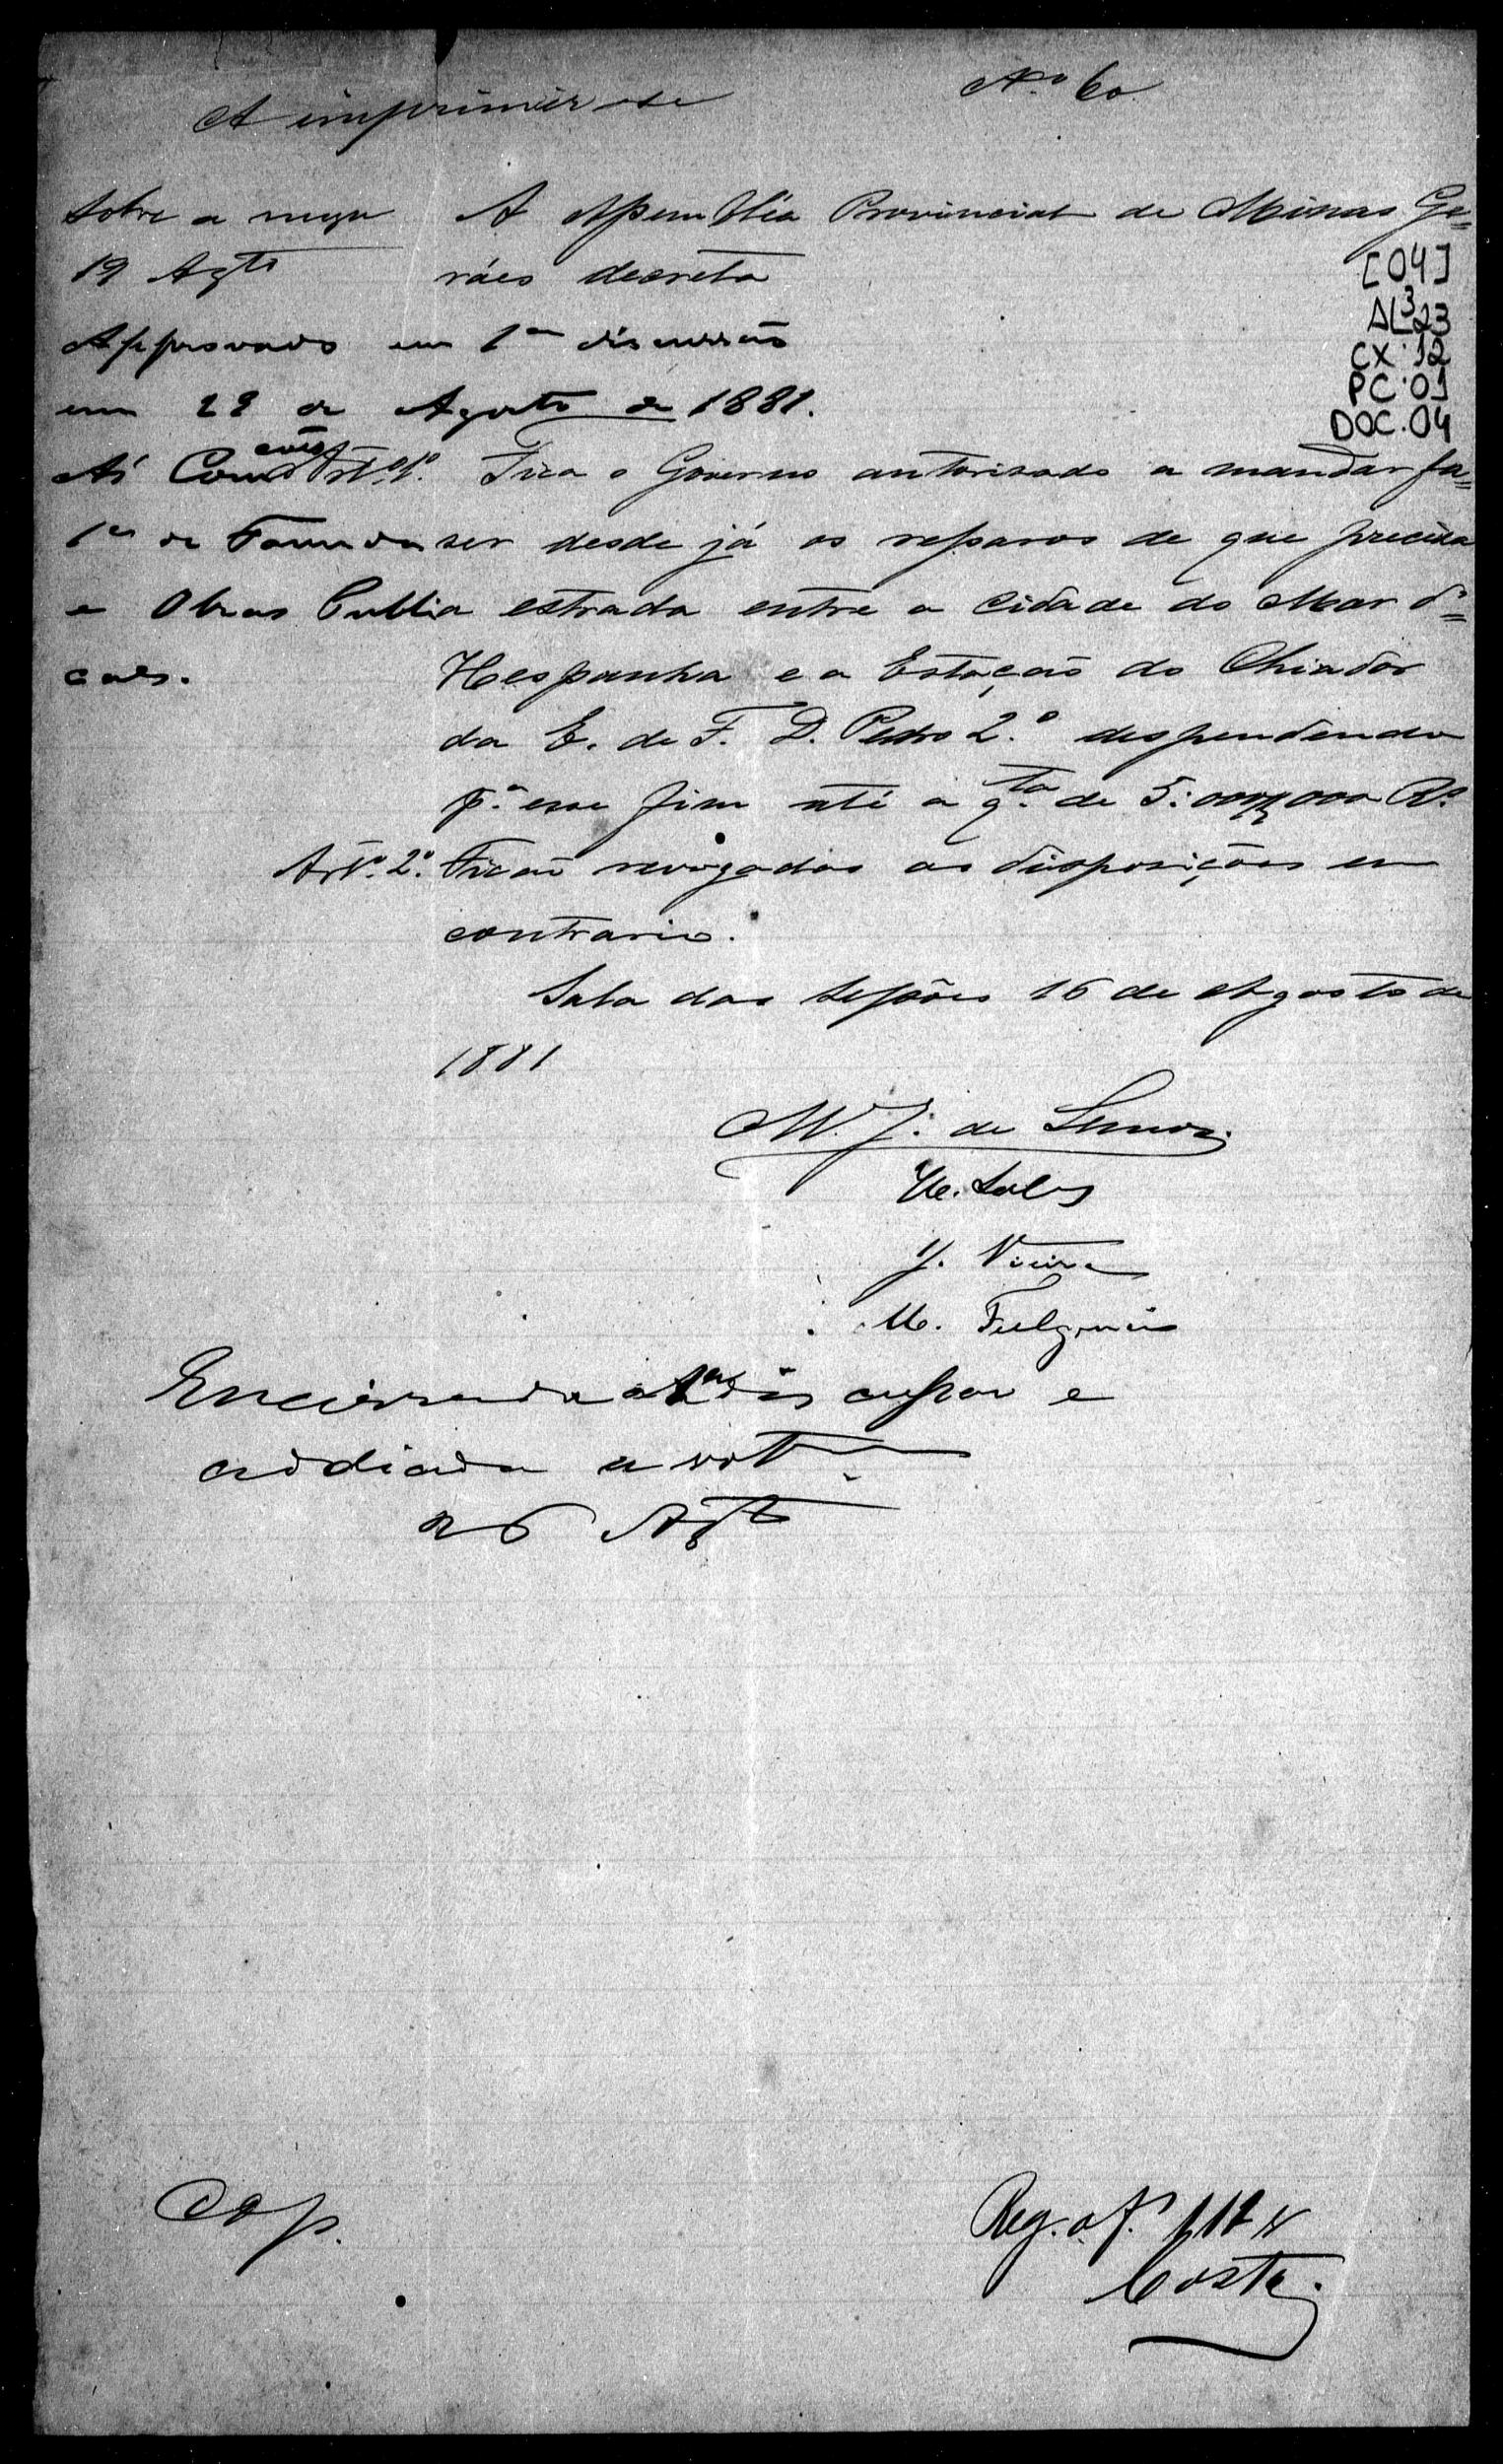 Nº 60
A imprimir-se
Sobre a mesa
19 Agto
A Assembléa Provincial de Minas Ge=
ráes decreta
[04]
AL 3 23
CX. 12
PC. 01
DOC. 04
Approvado em 1ª discussão
em 29 de Agosto de 1881.
Ás Commissões
1ª de Fazenda
e Obras Publi
cas.
Artº 1º. Fica o Governo autorisado a mandar fa=
ser desde já os reparos de que precisa
a estrada entre a Cidade do Mar d'=
Hespanha e a Estação do Chiador
da E. de F. D. Pedro 2.º despendendo
pª esse fim até a qta de 5:000$000 Rs
Artº. 2º. Ficaõ revogadas as disposições em
contrario.
Sala das Sessões 16 de Agosto de
1881
M. J. de Lemos.
M. Salles
J. Vieira
M. Fulgencio
Encerrada a 1ª discussão e
addiada a votm
26 Agto
Cop.
Reg. a f. 117 v
Costa.